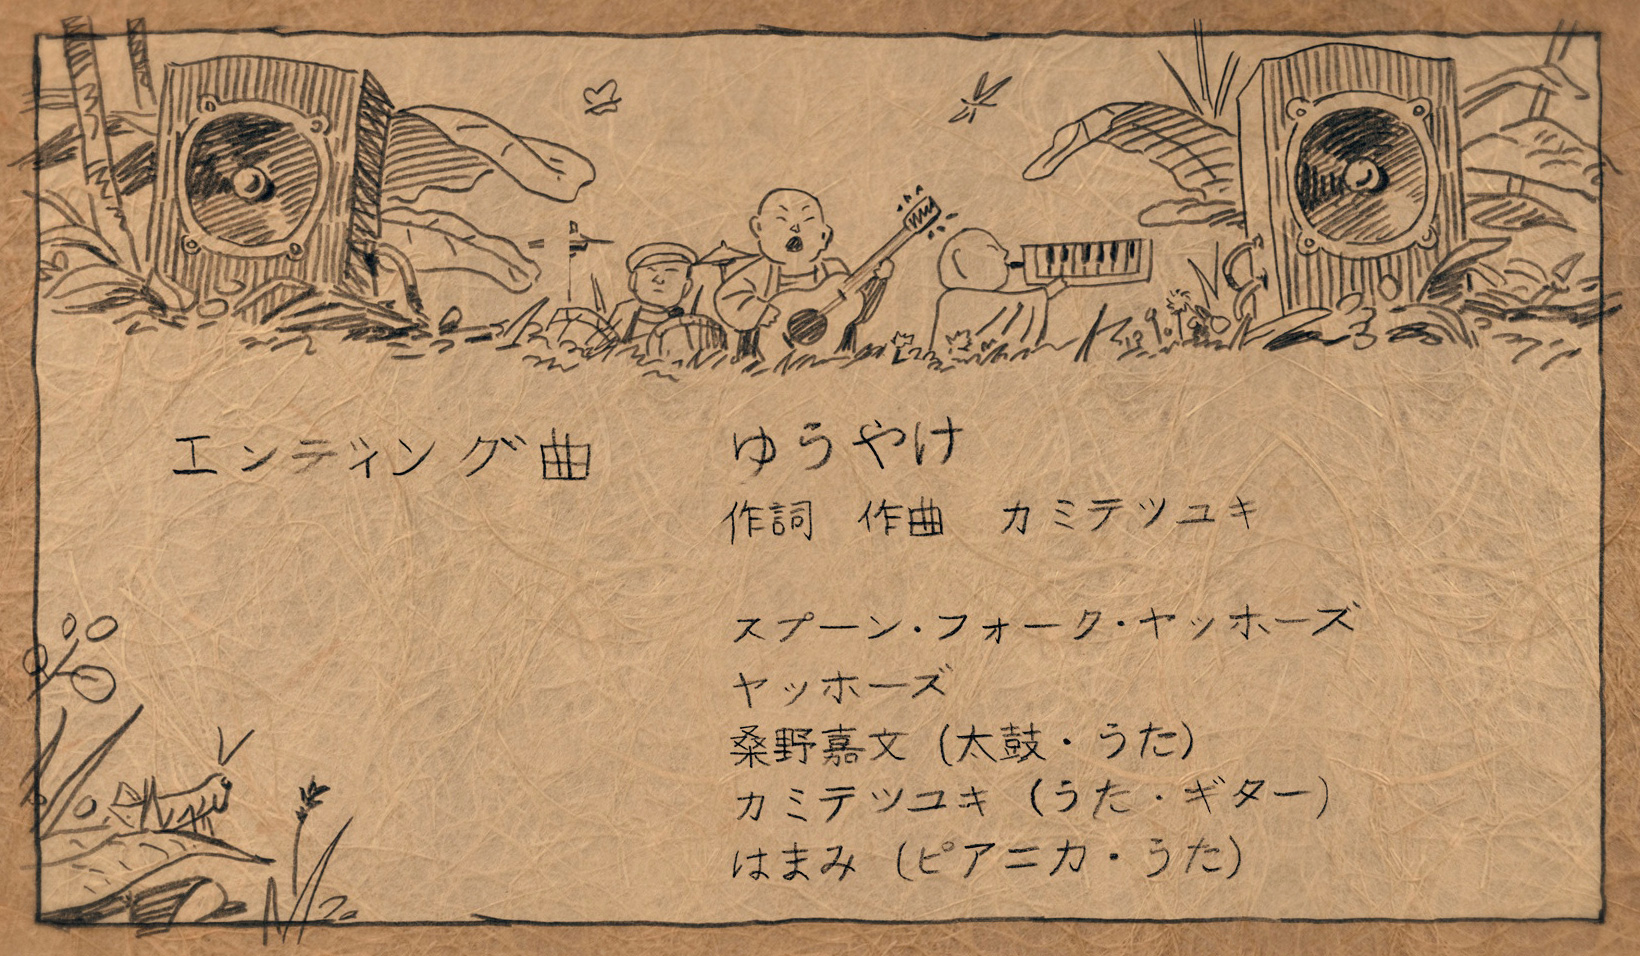 エンディング曲 ゆうやけ
作詞 作曲 カミテツユキ
スプーン・フォーク・ヤッホーズ
ヤッホーズ
桑野嘉文 (太鼓・うた)
カミテツユキ (うた・ギター)
はまみ (ピアニカ・うた)